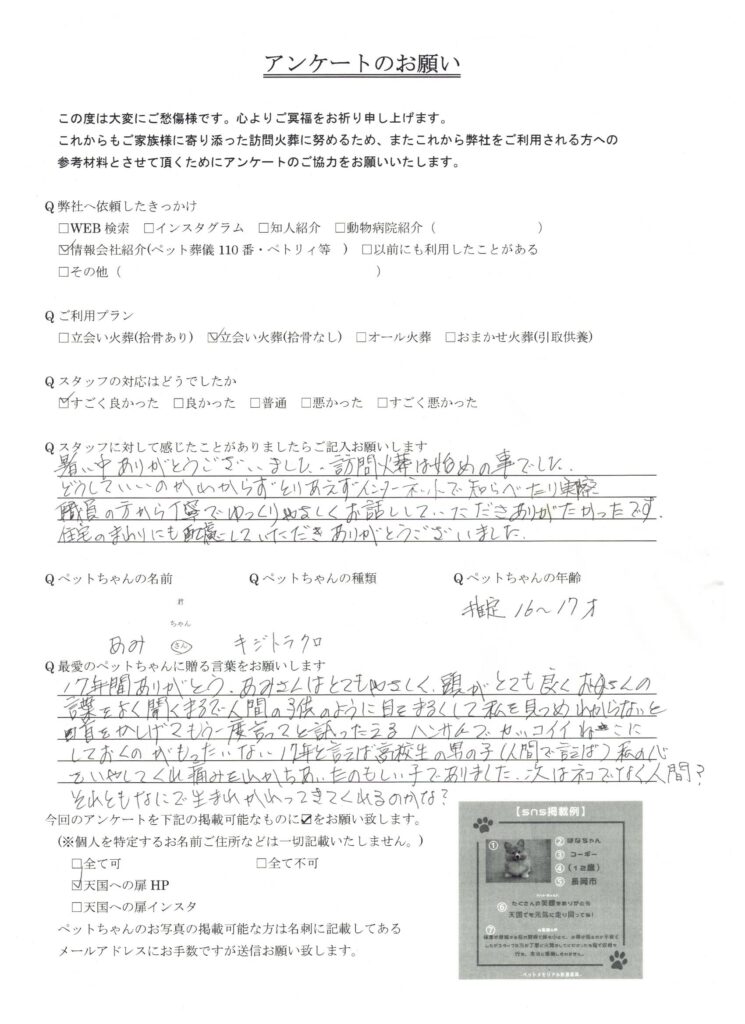 アンケートのお願い
この度は大変にご愁傷様です。心よりご冥福をお祈り申し上げます。
これからもご家族様に寄り添った訪問火葬に努めるため、またこれから弊社をご利用される方への
参考材料とさせて頂くためにアンケートのご協力をお願いいたします。
Q 弊社へ依頼したきっかけ
□WEB 検索 □インスタグラム □知人紹介 □動物病院紹介（ ）
☑情報会社紹介(ペット葬儀 110 番・ペトリィ等 ) □以前にも利用したことがある
□その他（ ）
Q ご利用プラン
□立会い火葬(拾骨あり) ☑立会い火葬(拾骨なし) □オール火葬 □おまかせ火葬(引取供養)
Q スタッフの対応はどうでしたか
☑すごく良かった □良かった □普通 □悪かった □すごく悪かった
Q スタッフに対して感じたことがありましたらご記入お願いします
暑い中ありがとうございました。訪問火葬は始めの事でした。
どうしていいのかわからずとりあえずインターネットで知らべたり実際
職員の方から丁寧でゆっくりやさしくお話ししていただきありがたかったです。
住宅のまわりにも配慮していただきありがとうございました。
Q ペットちゃんの名前 Q ペットちゃんの種類 Q ペットちゃんの年齢
君
ちゃん
さん
あみ キジトラクロ 推定 16〜17才
Q 最愛のペットちゃんに贈る言葉をお願いします
17年間ありがとう。あみさんはとてもやさしく、頭がとても良くお母さんの
言葉をよく聞くまるで人間の子供のように目をまるくして私を見つめわからないと
首をかしげてもう一度言ってと訴ったえる ハンサムでカッコイイ ねこに
しておくのがもったいない 17年と言えば高校生の男の子(人間で言えば) 私の心
をいやしてくれ痛みをわかちあいたのもしい子でありました。次はネコでなく人間?
それともなにで生まれかわってきてくれるのかな?
今回のアンケートを下記の掲載可能なものに☑をお願い致します。
(※個人を特定するお名前ご住所などは一切記載いたしません。)
□全て可 □全て不可
☑天国への扉 HP
□天国への扉インスタ
ペットちゃんのお写真の掲載可能な方は名刺に記載してある
メールアドレスにお手数ですが送信お願い致します。
【sns掲載例】
①
② はなちゃん
③ コーギー
④ （12歳）
⑤ 長岡市
⑥ たくさんの笑顔をありがとう
天国でも元気に走り回ってね！
⑦